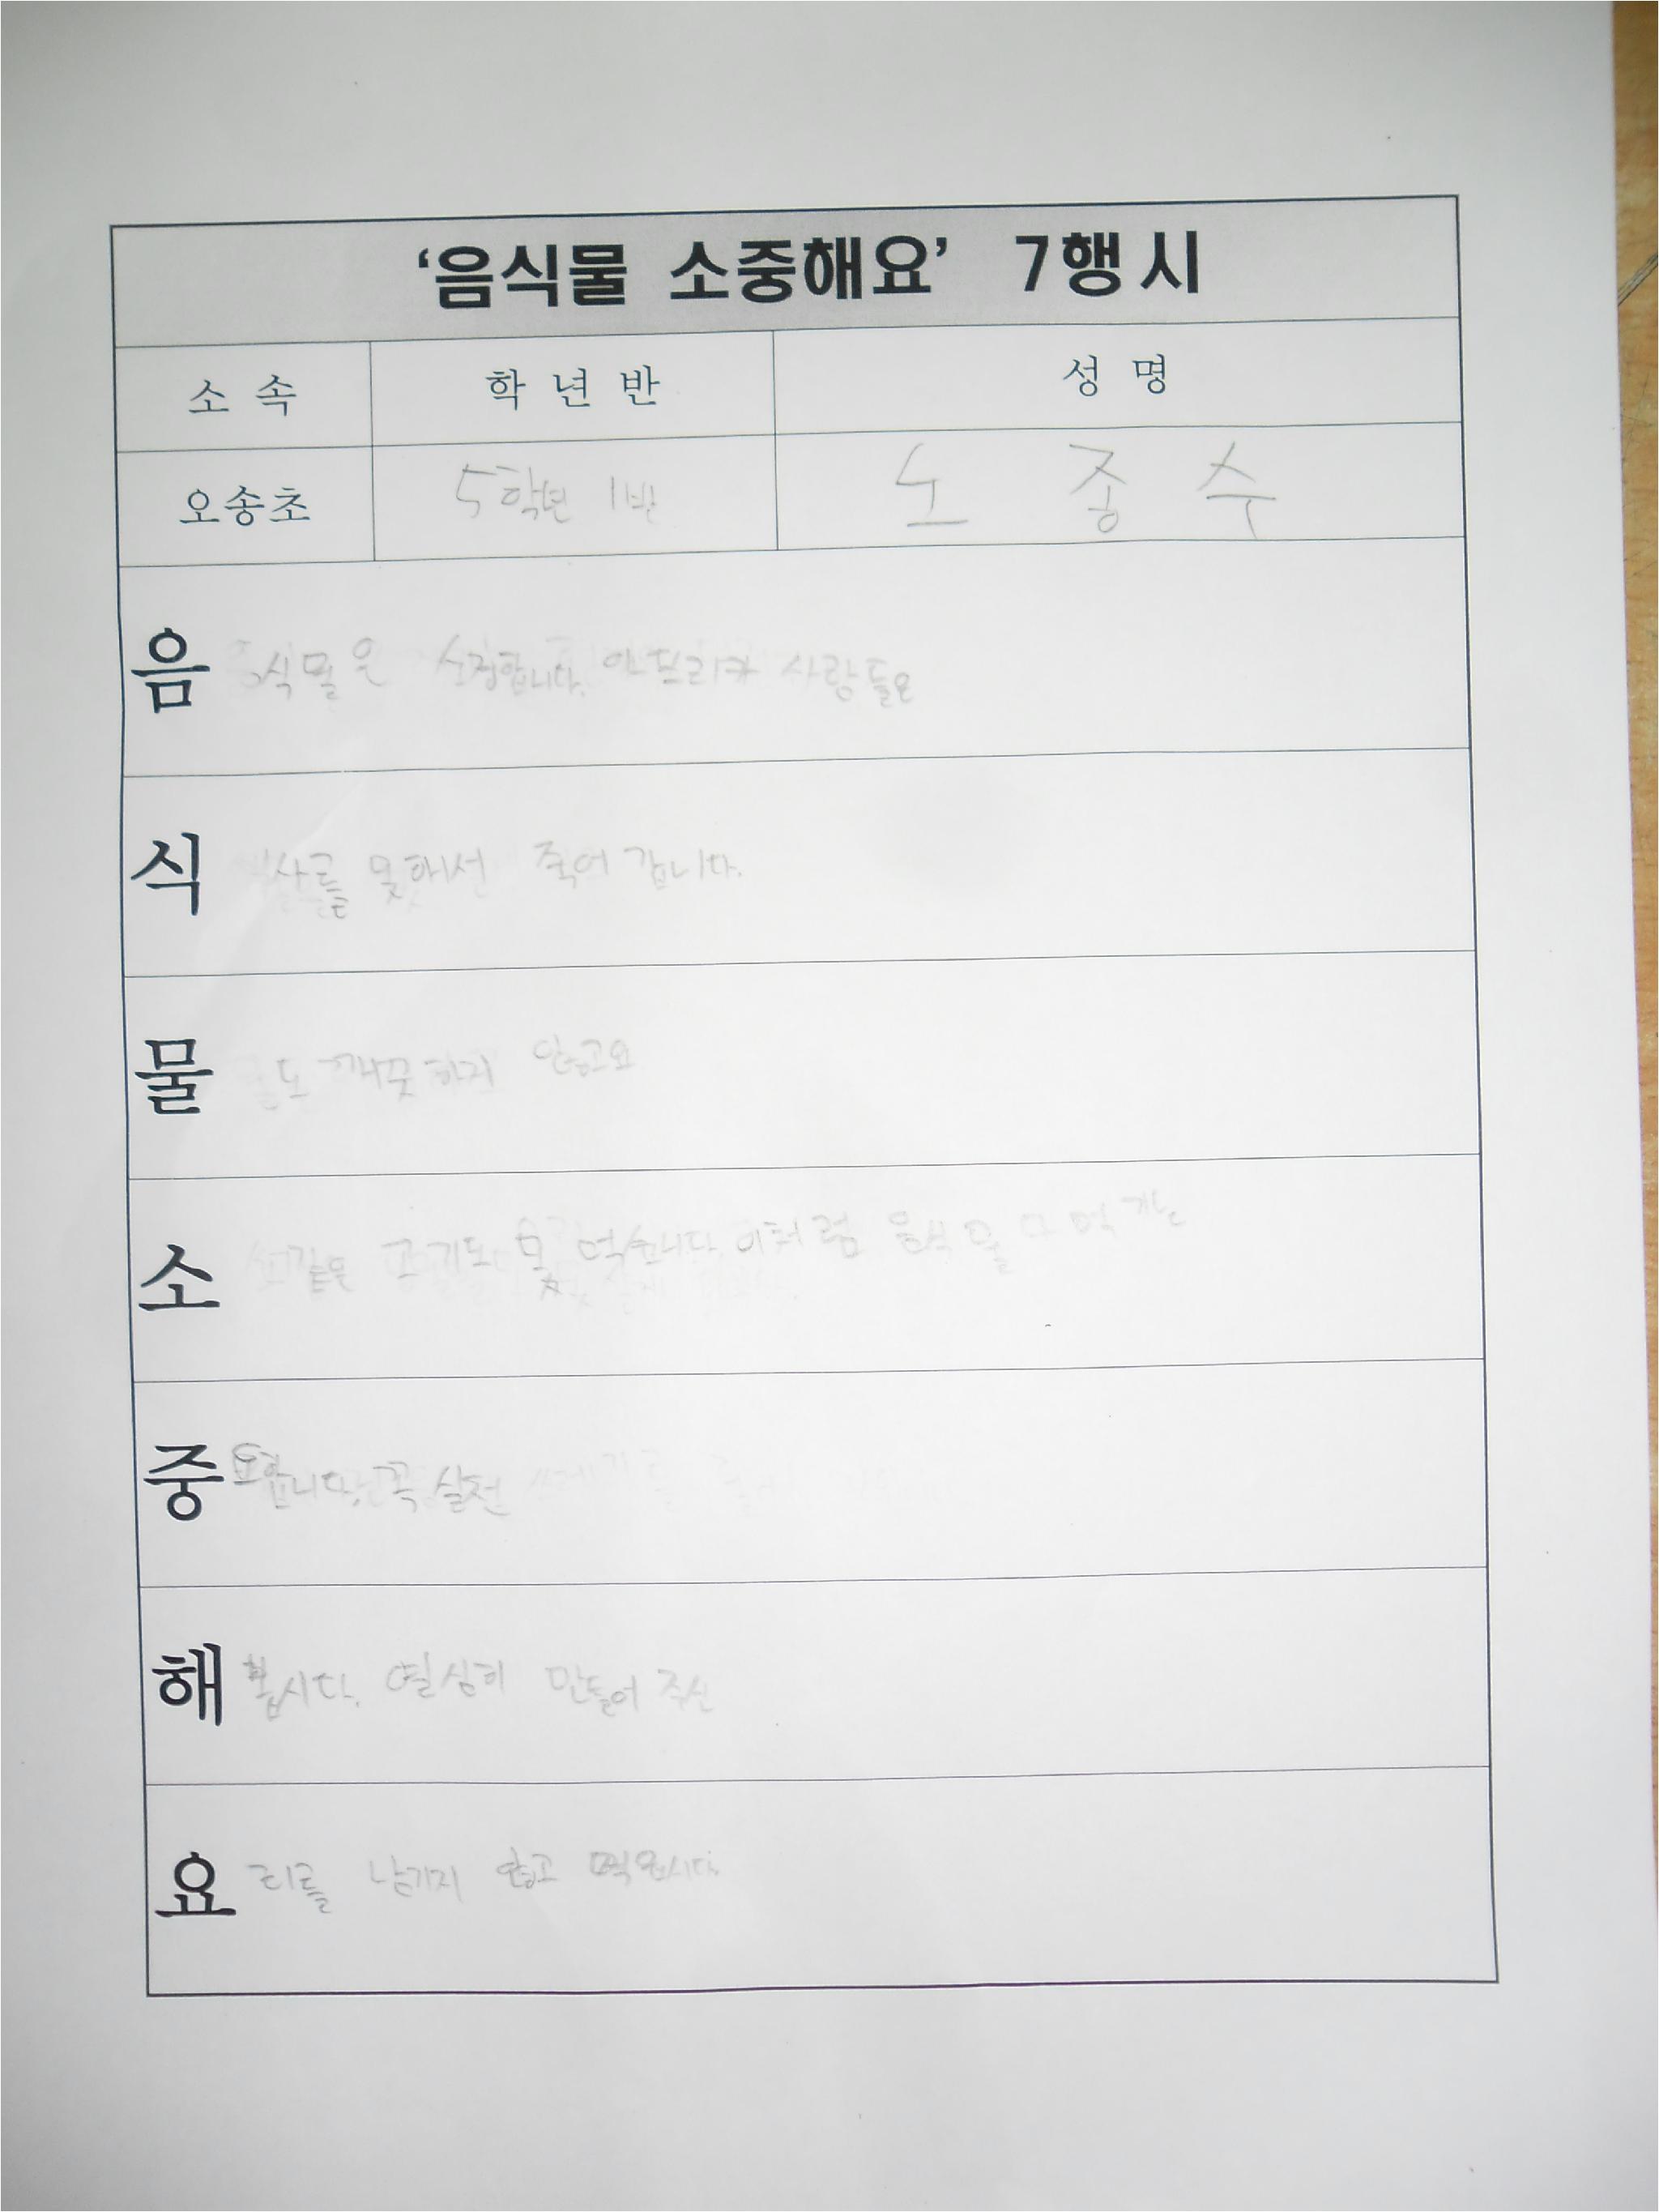 ‘음식물 소중해요’ 7행시
소 속 학 년 반 성 명
오송초 5학년 1반 노 종 수
음 음식물은 소중합니다. 아프리카 사람들은
식 식사를 못해서 죽어 갑니다.
물 물도 깨끗하지 않고요
소 소같은 고기도 못 먹습니다. 이처럼 음식물
중 요합니다. 꼭 실천
해 봅시다. 열심히 만들어 주신
요 리를 남기지 않고 먹읍시다.